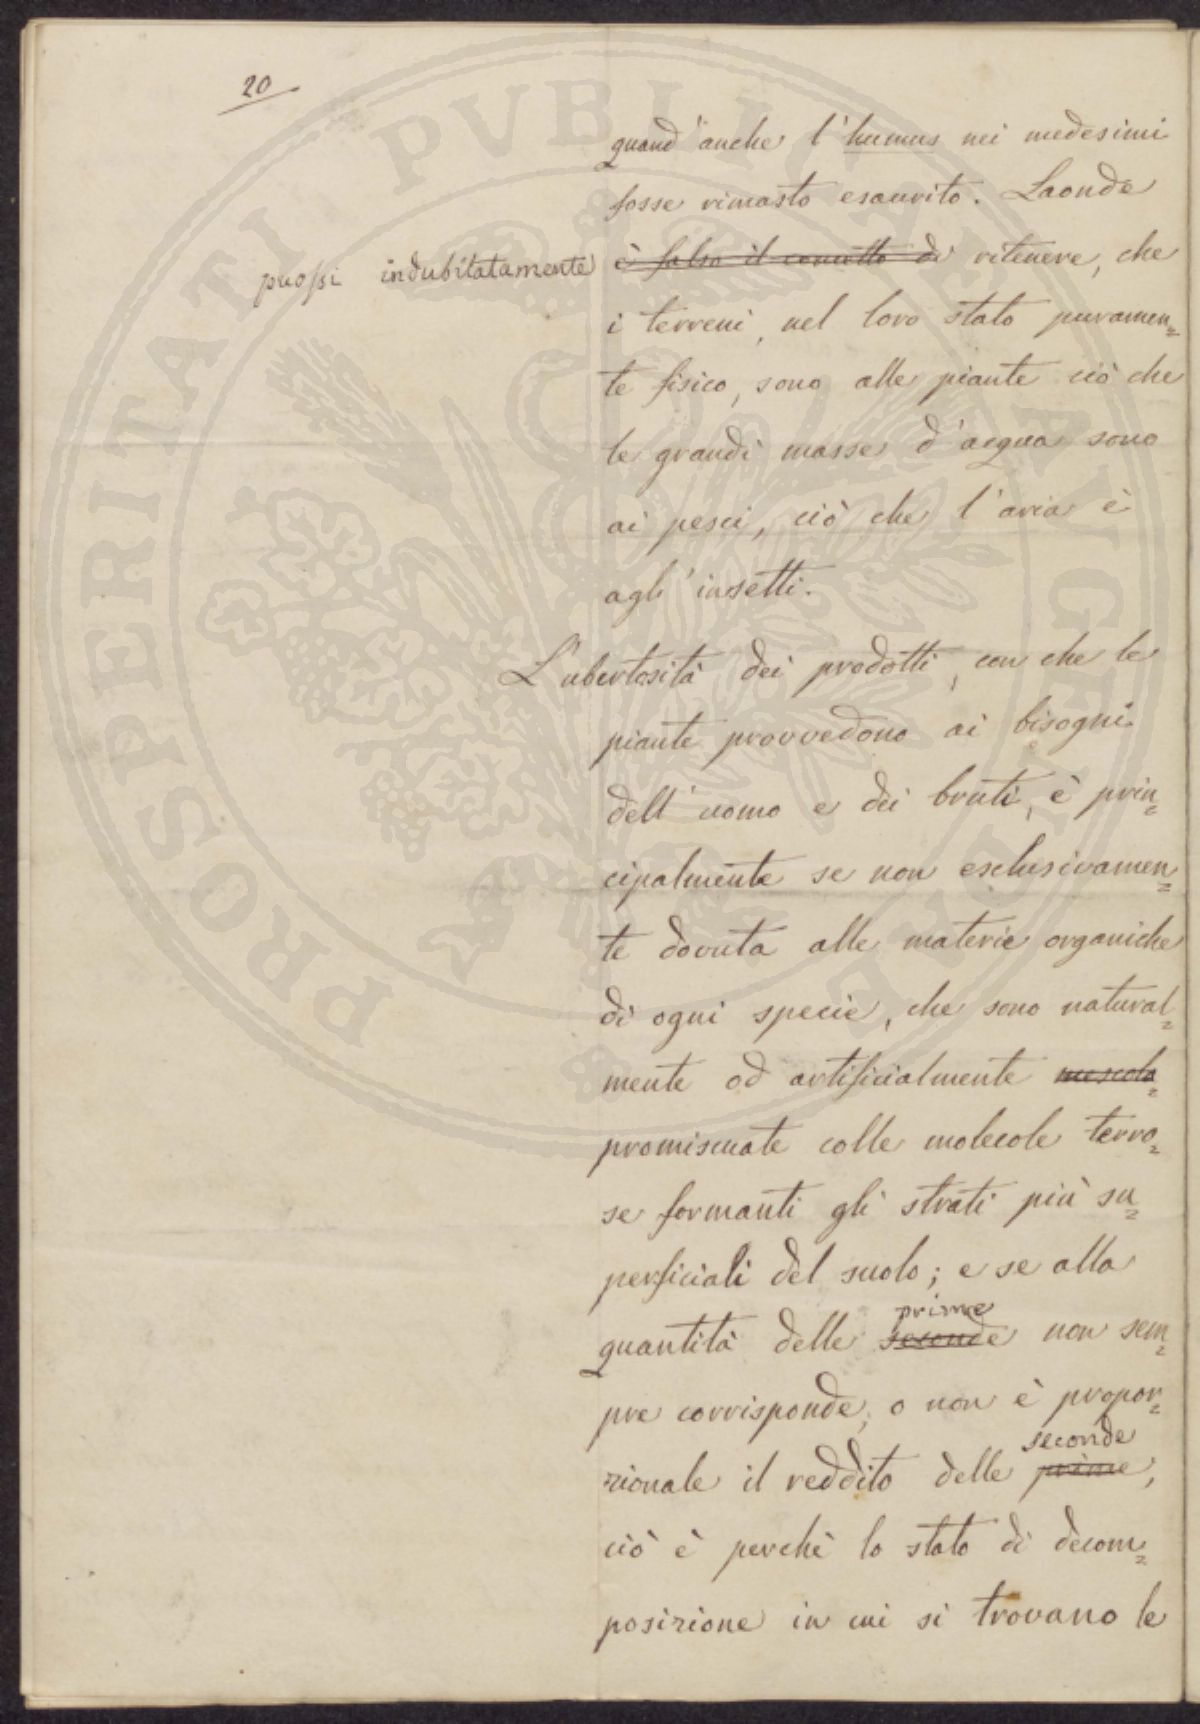 20
quand'anche l'humus nei medesimi
fosse rimasto esaurito. Laonde
puossi indubitatamente è falso il concetto di ritenere, che
i terreni, nel loro stato puramen=
te fisico, sono alle piante ciò che
le grandi masse d'acqua sono
ai pesci, ciò che l'aria è
agl'insetti.
L'ubertosità dei prodotti, con che le
piante provvedono ai bisogni
dell'uomo e dei bruti, è prin=
cipalmente se non esclusivamen=
te dovuta alle materie organiche
di ogni specie, che sono natural=
mente od artificialmente mescola
promiscuate colle molecole terro=
se formanti gli strati più su=
perficiali del suolo; e se alla
prime
quantità delle seconde non sem=
pre corrisponde, o non è propor=
seconde
zionale il reddito delle prime,
ciò è perchè lo stato di decom=
posizione in cui si trovano le
PROSPERITATI PVBLICAE AVGENDAE